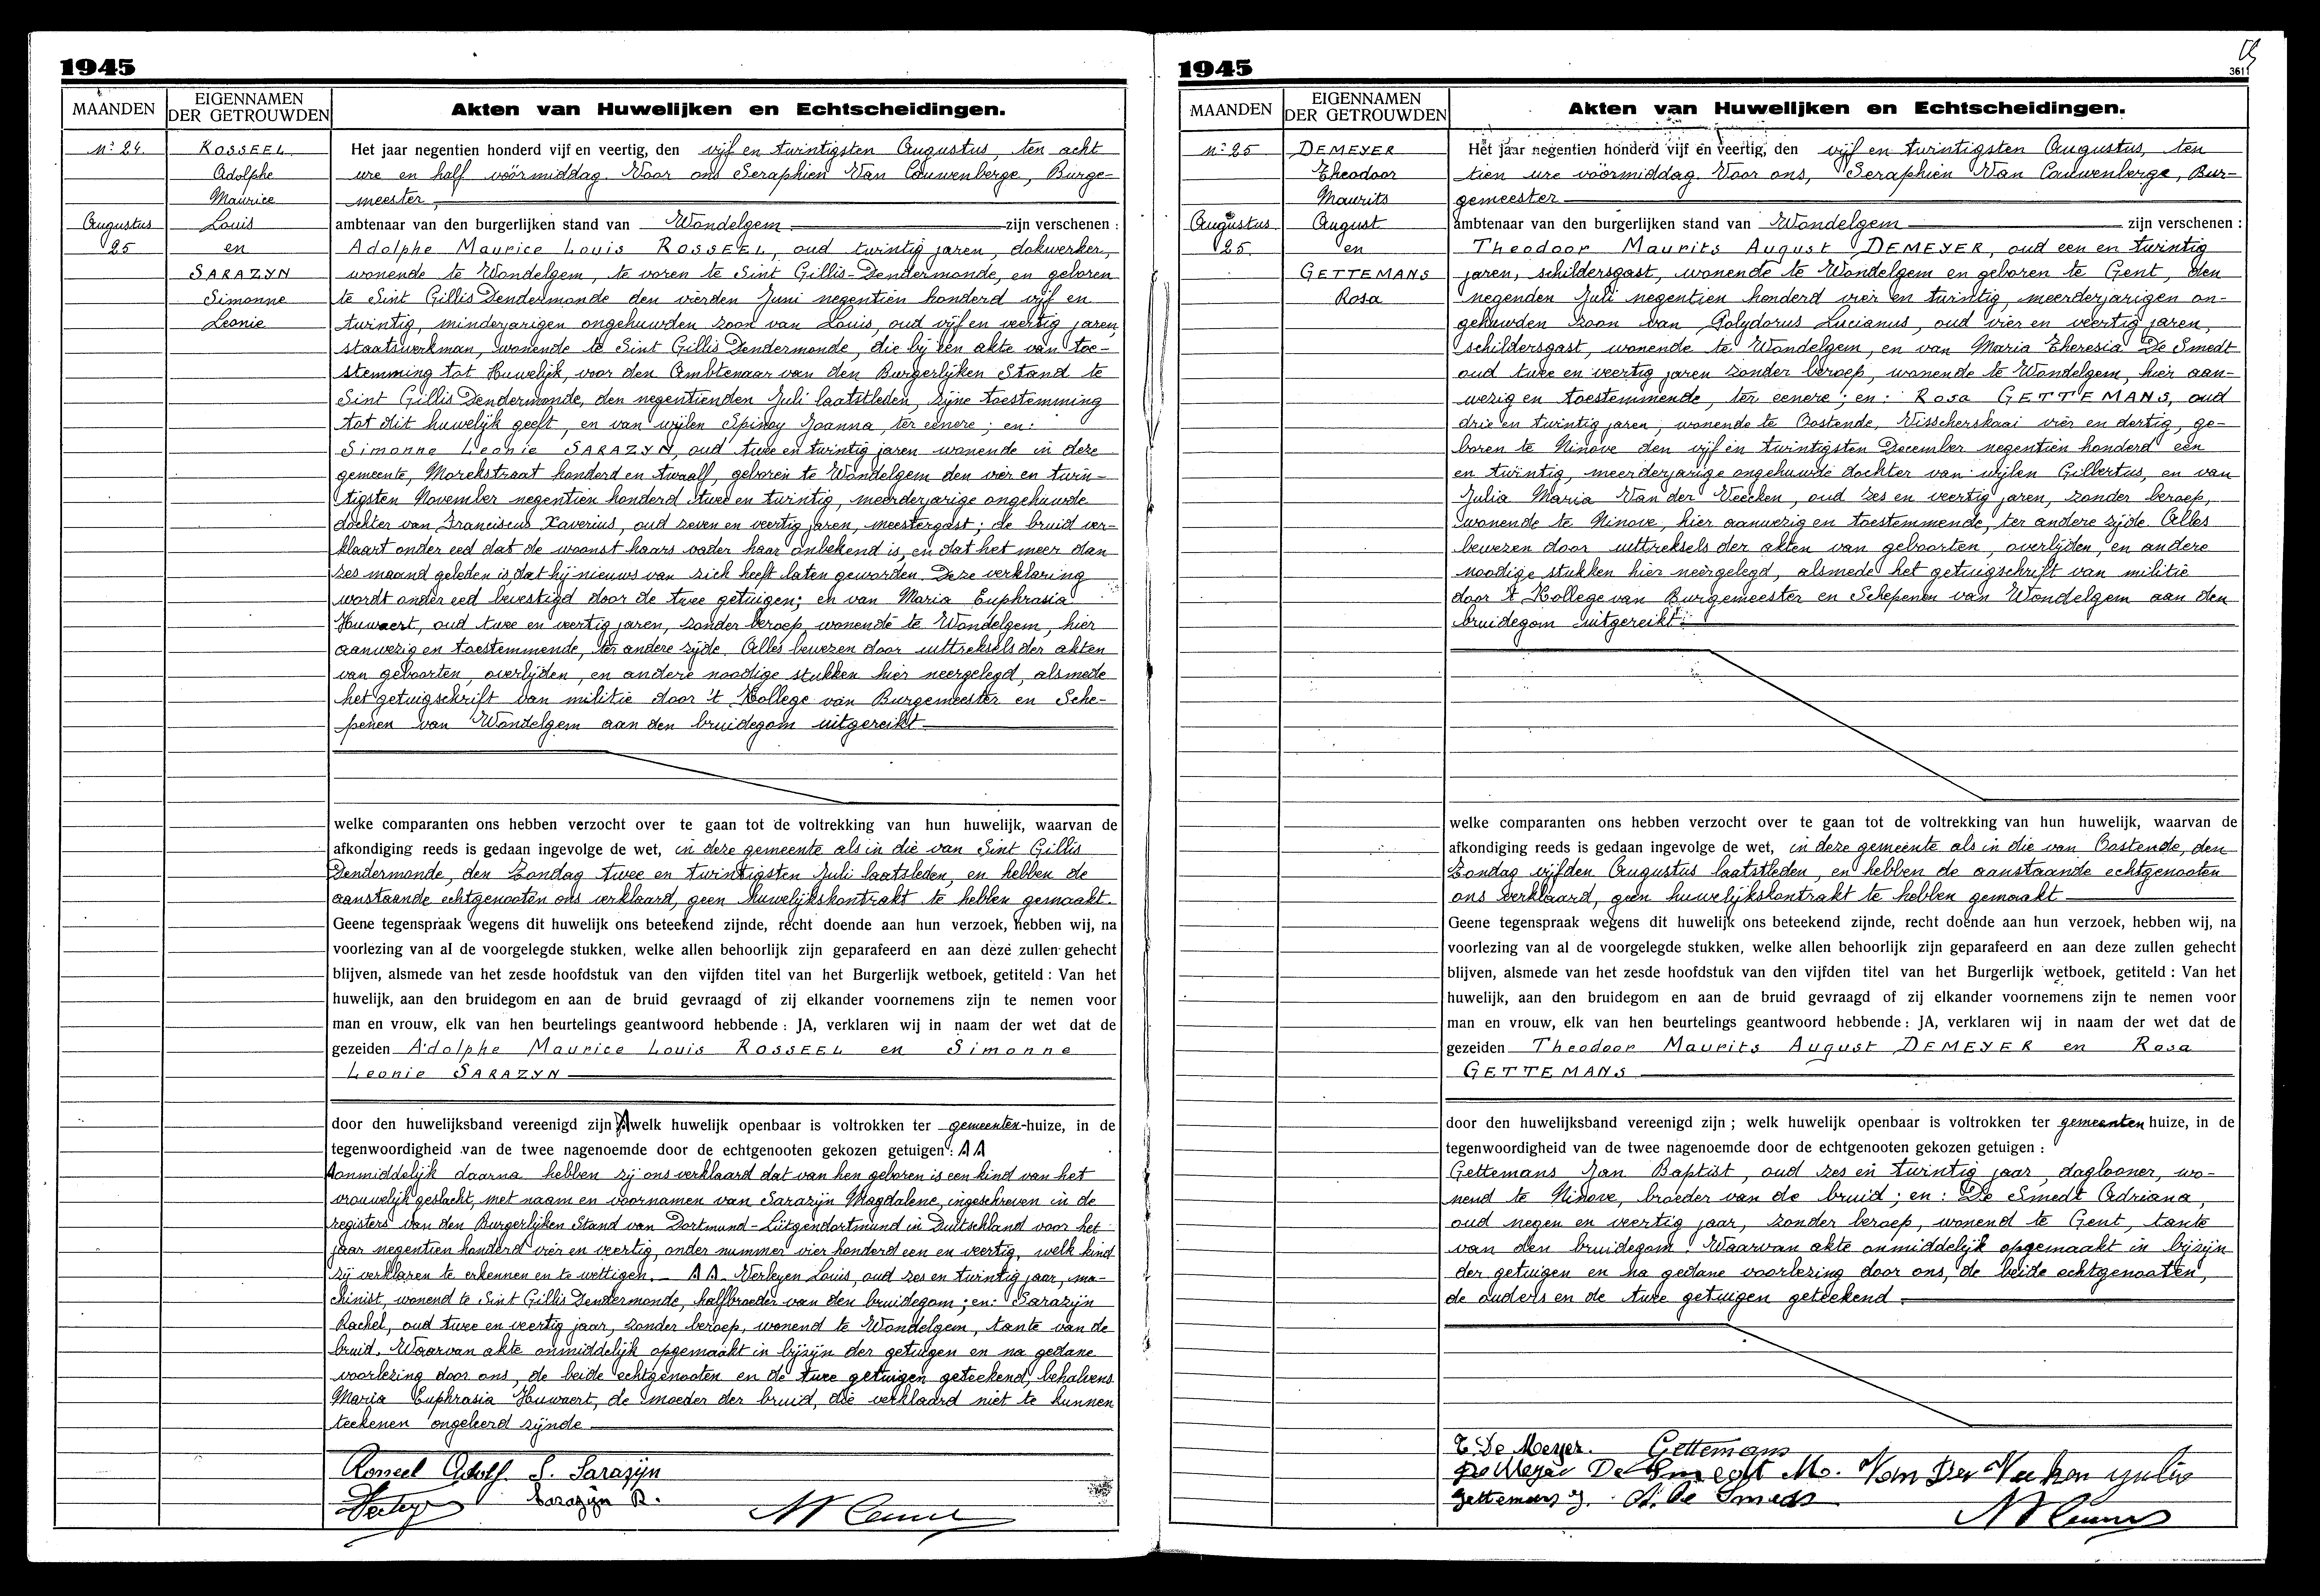 1945
MAANDEN
EIGENNAMEN
DER GETROUWDEN
Akten van Huwelijken en Echtscheidingen.
N° 24.
ROSSEEL
Adolphe
Maurice
Louis
en
SARAZYN
Simonne
Leonie
Augustus
25
Het jaar negentien honderd vijf en veertig, den vijf en twintigsten Augustus, ten acht
ure en half vóórmiddag. Voor ons Seraphien Van Cauwenberge, Burge-
meester
ambtenaar van den burgerlijken stand van Wondelgem zijn verschenen :
Adolphe Maurice Louis ROSSEEL, oud twintig jaren, dokwerker,
wonende te Wondelgem, te voren te Sint Gillis-Dendermonde, en geboren
te Sint Gillis Dendermonde den vierden Juni negentien honderd vijf en
twintig, minderjarigen ongehuwden zoon van Louis, oud vijf en veertig jaren,
staatswerkman, wonende te Sint Gillis Dendermonde, die bij een akte van toe-
stemming tot Huwelijk, voor den Ambtenaar van den Burgerlijken Stand te
Sint Gillis Dendermonde, den negentienden Juli laatstleden, zijne toestemming
tot dit huwelijk geeft, en van wijlen Spinoy Joanna, ter eenere ; en:
Simonne Leonie SARAZYN, oud twee en twintig jaren wonende in deze
gemeente, Morekstraat honderd en twaalf, geboren te Wondelgem den vier en twin-
tigsten November negentien honderd twee en twintig, meerderjarige ongehuwde
dochter van Franciscus Xaverius, oud zeven en veertig jaren, meestergast; de bruid ver-
klaart onder eed dat de woonst haars vader haar onbekend is, en dat het meer dan
zes maand geleden is dat hij nieuws van zich heeft laten geworden. Deze verklaring
wordt onder eed bevestigd door de twee getuigen; en van Maria Euphrasia
Huwaert, oud twee en veertig jaren, zonder beroep wonende te Wondelgem, hier
aanwezig en toestemmende, ter andere zijde. Alles bewezen door uittreksels der akten
van geboorten, overlijden, en andere noodige stukken hier neergelegd, alsmede
het getuigschrift van militie door 't Kollege van Burgemeester en Sche-
penen van Wondelgem aan den bruidegom uitgereikt
welke comparanten ons hebben verzocht over te gaan tot de voltrekking van hun huwelijk, waarvan de
afkondiging reeds is gedaan ingevolge de wet, in deze gemeente als in die van Sint Gillis
Dendermonde, den Zondag twee en twintigsten Juli laatsleden, en hebben de
aanstaande echtgenooten ons verklaard, geen huwelijkskontrakt te hebben gemaakt.
Geene tegenspraak wegens dit huwelijk ons beteekend zijnde, recht doende aan hun verzoek, hebben wij, na
voorlezing van al de voorgelegde stukken, welke allen behoorlijk zijn geparafeerd en aan deze zullen gehecht
blijven, alsmede van het zesde hoofdstuk van den vijfden titel van het Burgerlijk wetboek, getiteld : Van het
huwelijk, aan den bruidegom en aan de bruid gevraagd of zij elkander voornemens zijn te nemen voor
man en vrouw, elk van hen beurtelings geantwoord hebbende : JA, verklaren wij in naam der wet dat de
gezeiden Adolphe Maurice Louis ROSSEEL en Simonne
Leonie SARAZYN
door den huwelijksband vereenigd zijn A welk huwelijk openbaar is voltrokken ter gemeenten-huize, in de
tegenwoordigheid van de twee nagenoemde door de echtgenooten gekozen getuigen : AA
Aonmiddelijk daarna hebben zij ons verklaard dat van hen geboren is een kind van het
vrouwelijk geslacht, met naam en voornamen van Sarazijn Magdalene, ingeschreven in de
registers van den Burgerlijken Stand van Dortmund-Lütgendortmund in Duitschland voor het
jaar negentien honderd vier en veertig, onder nummer vier honderd een en veertig, welk kind
zij verklaren te erkennen en te wettigen. AA. Verleyen Louis, oud zes en twintig jaar, ma-
chinist, wonend te Sint Gillis Dendermonde, halfbroeder van den bruidegom; en: Sarazijn
Rachel, oud twee en veertig jaar, zonder beroep, wonend te Wondelgem, tante van de
bruid. Waarvan akte onmiddelijk opgemaakt in bijzijn der getuigen en na gedane
voorlezing door ons, de beide echtgenooten en de twee getuigen geteekend, behalvens
Maria Euphrasia Huwaert, de moeder der bruid, die verklaard niet te kunnen
teekenen ongeleerd zijnde
Rosseel Adolf. S. Sarazijn
Sarazijn R.
1945
3611
MAANDEN
EIGENNAMEN
DER GETROUWDEN
Akten van Huwelijken en Echtscheidingen.
N° 25
DEMEYER
Theodoor
Maurits
August
en
GETTEMANS
Rosa
Augustus
25.
Het jaar negentien honderd vijf en veertig, den vijf en twintigsten Augustus, ten
tien ure vóórmiddag. Voor ons, Seraphien Van Cauwenberge, Bur-
gemeester
ambtenaar van den burgerlijken stand van Wondelgem zijn verschenen :
Theodoor Maurits August DEMEYER, oud een en twintig
jaren, schildersgast, wonende te Wondelgem en geboren te Gent, den
negenden Juli negentien honderd vier en twintig, meerderjarigen on-
gehuwden zoon van Polydorus Lucianus, oud vier en veertig jaren,
schildersgast, wonende te Wondelgem, en van Maria Theresia De Smedt
oud twee en veertig jaren zonder beroep, wonende te Wondelgem, hier aan-
wezig en toestemmende, ter eenere ; en: Rosa GETTEMANS, oud
drie en twintig jaren, wonende te Oostende, Visscherskaai vier en dertig, ge-
boren te Ninove den vijf en twintigsten December negentien honderd een
en twintig, meerderjarige ongehuwde dochter van wijlen Gilbertus, en van
Julia Maria Van der Veecken, oud zes en veertig jaren, zonder beroep,
wonende te Ninove, hier aanwezig en toestemmende, ter andere zijde. Alles
bewezen door uittreksels der akten van geboorten, overlijden, en andere
noodige stukken hier neergelegd, alsmede het getuigschrift van militie
door 't Kollege van Burgemeester en Schepenen van Wondelgem aan den
bruidegom uitgereikt.
welke comparanten ons hebben verzocht over te gaan tot de voltrekking van hun huwelijk, waarvan de
afkondiging reeds is gedaan ingevolge de wet, in deze gemeente als in die van Oostende, den
Zondag vijfden Augustus laatstleden, en hebben de aanstaande echtgenooten
ons verklaard, geen huwelijkskontrakt te hebben gemaakt
Geene tegenspraak wegens dit huwelijk ons beteekend zijnde, recht doende aan hun verzoek, hebben wij, na
voorlezing van al de voorgelegde stukken, welke allen behoorlijk zijn geparafeerd en aan deze zullen gehecht
blijven, alsmede van het zesde hoofdstuk van den vijfden titel van het Burgerlijk wetboek, getiteld : Van het
huwelijk, aan den bruidegom en aan de bruid gevraagd of zij elkander voornemens zijn te nemen voor
man en vrouw, elk van hen beurtelings geantwoord hebbende : JA, verklaren wij in naam der wet dat de
gezeiden Theodoor Maurits August DEMEYER en Rosa
GETTEMANS
door den huwelijksband vereenigd zijn ; welk huwelijk openbaar is voltrokken ter gemeenten huize, in de
tegenwoordigheid van de twee nagenoemde door de echtgenooten gekozen getuigen :
Gettemans Jan Baptist, oud zes en twintig jaar, daglooner, wo-
nend te Ninove, broeder van de bruid ; en : De Smedt Adriana,
oud negen en veertig jaar, zonder beroep, wonend te Gent, tante
van den bruidegom. Waarvan akte onmiddelijk opgemaakt in bijzijn
der getuigen en na gedane voorlezing door ons, de beide echtgenooten,
de ouders en de twee getuigen geteekend.
T. De Meyer. Gettemans
De Meyer De Smedt M. Van Der Veeken Julia
Gettemans J. A. De Smedt